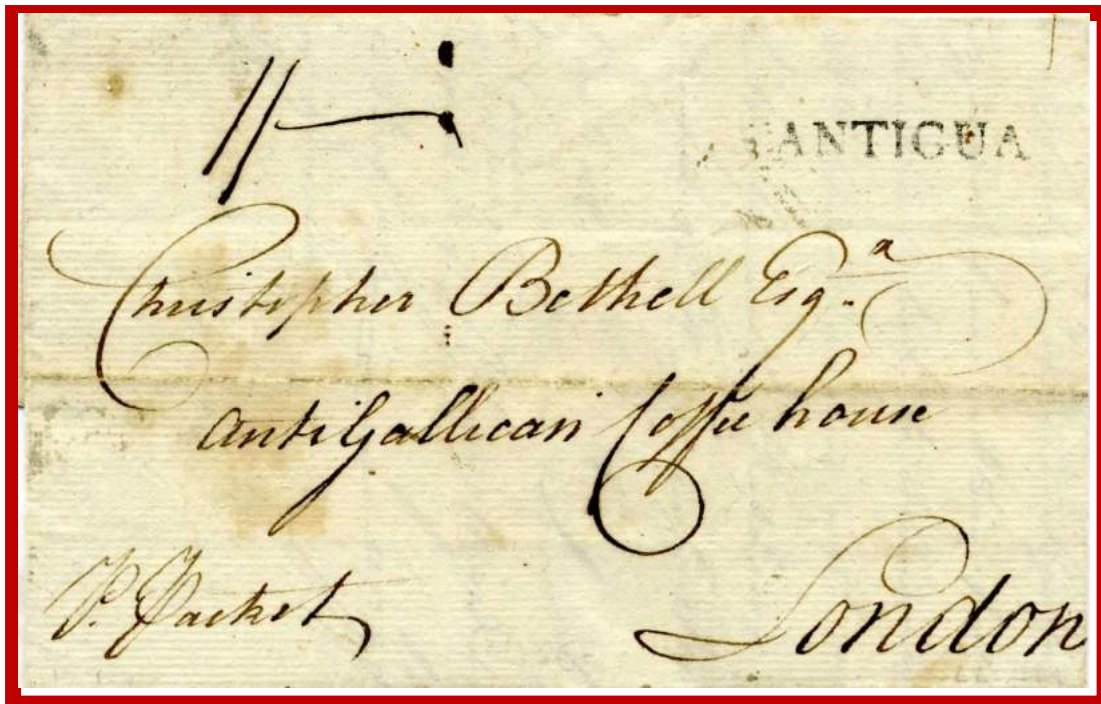 ANTIGUA
Christopher Bethell Esqr.
AntiGallican Coffee house
P. Packet
London